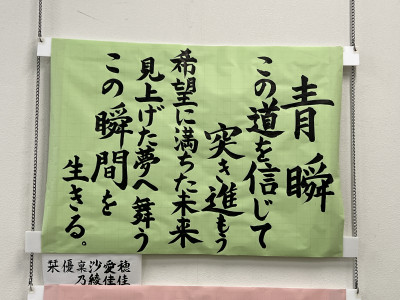 青瞬
この道を信じて
突き進もう
希望に満ちた未来
見上げた夢へ舞う
この瞬間を
生きる。
穂佳
愛佳
沙綾
稟乃
優
栞